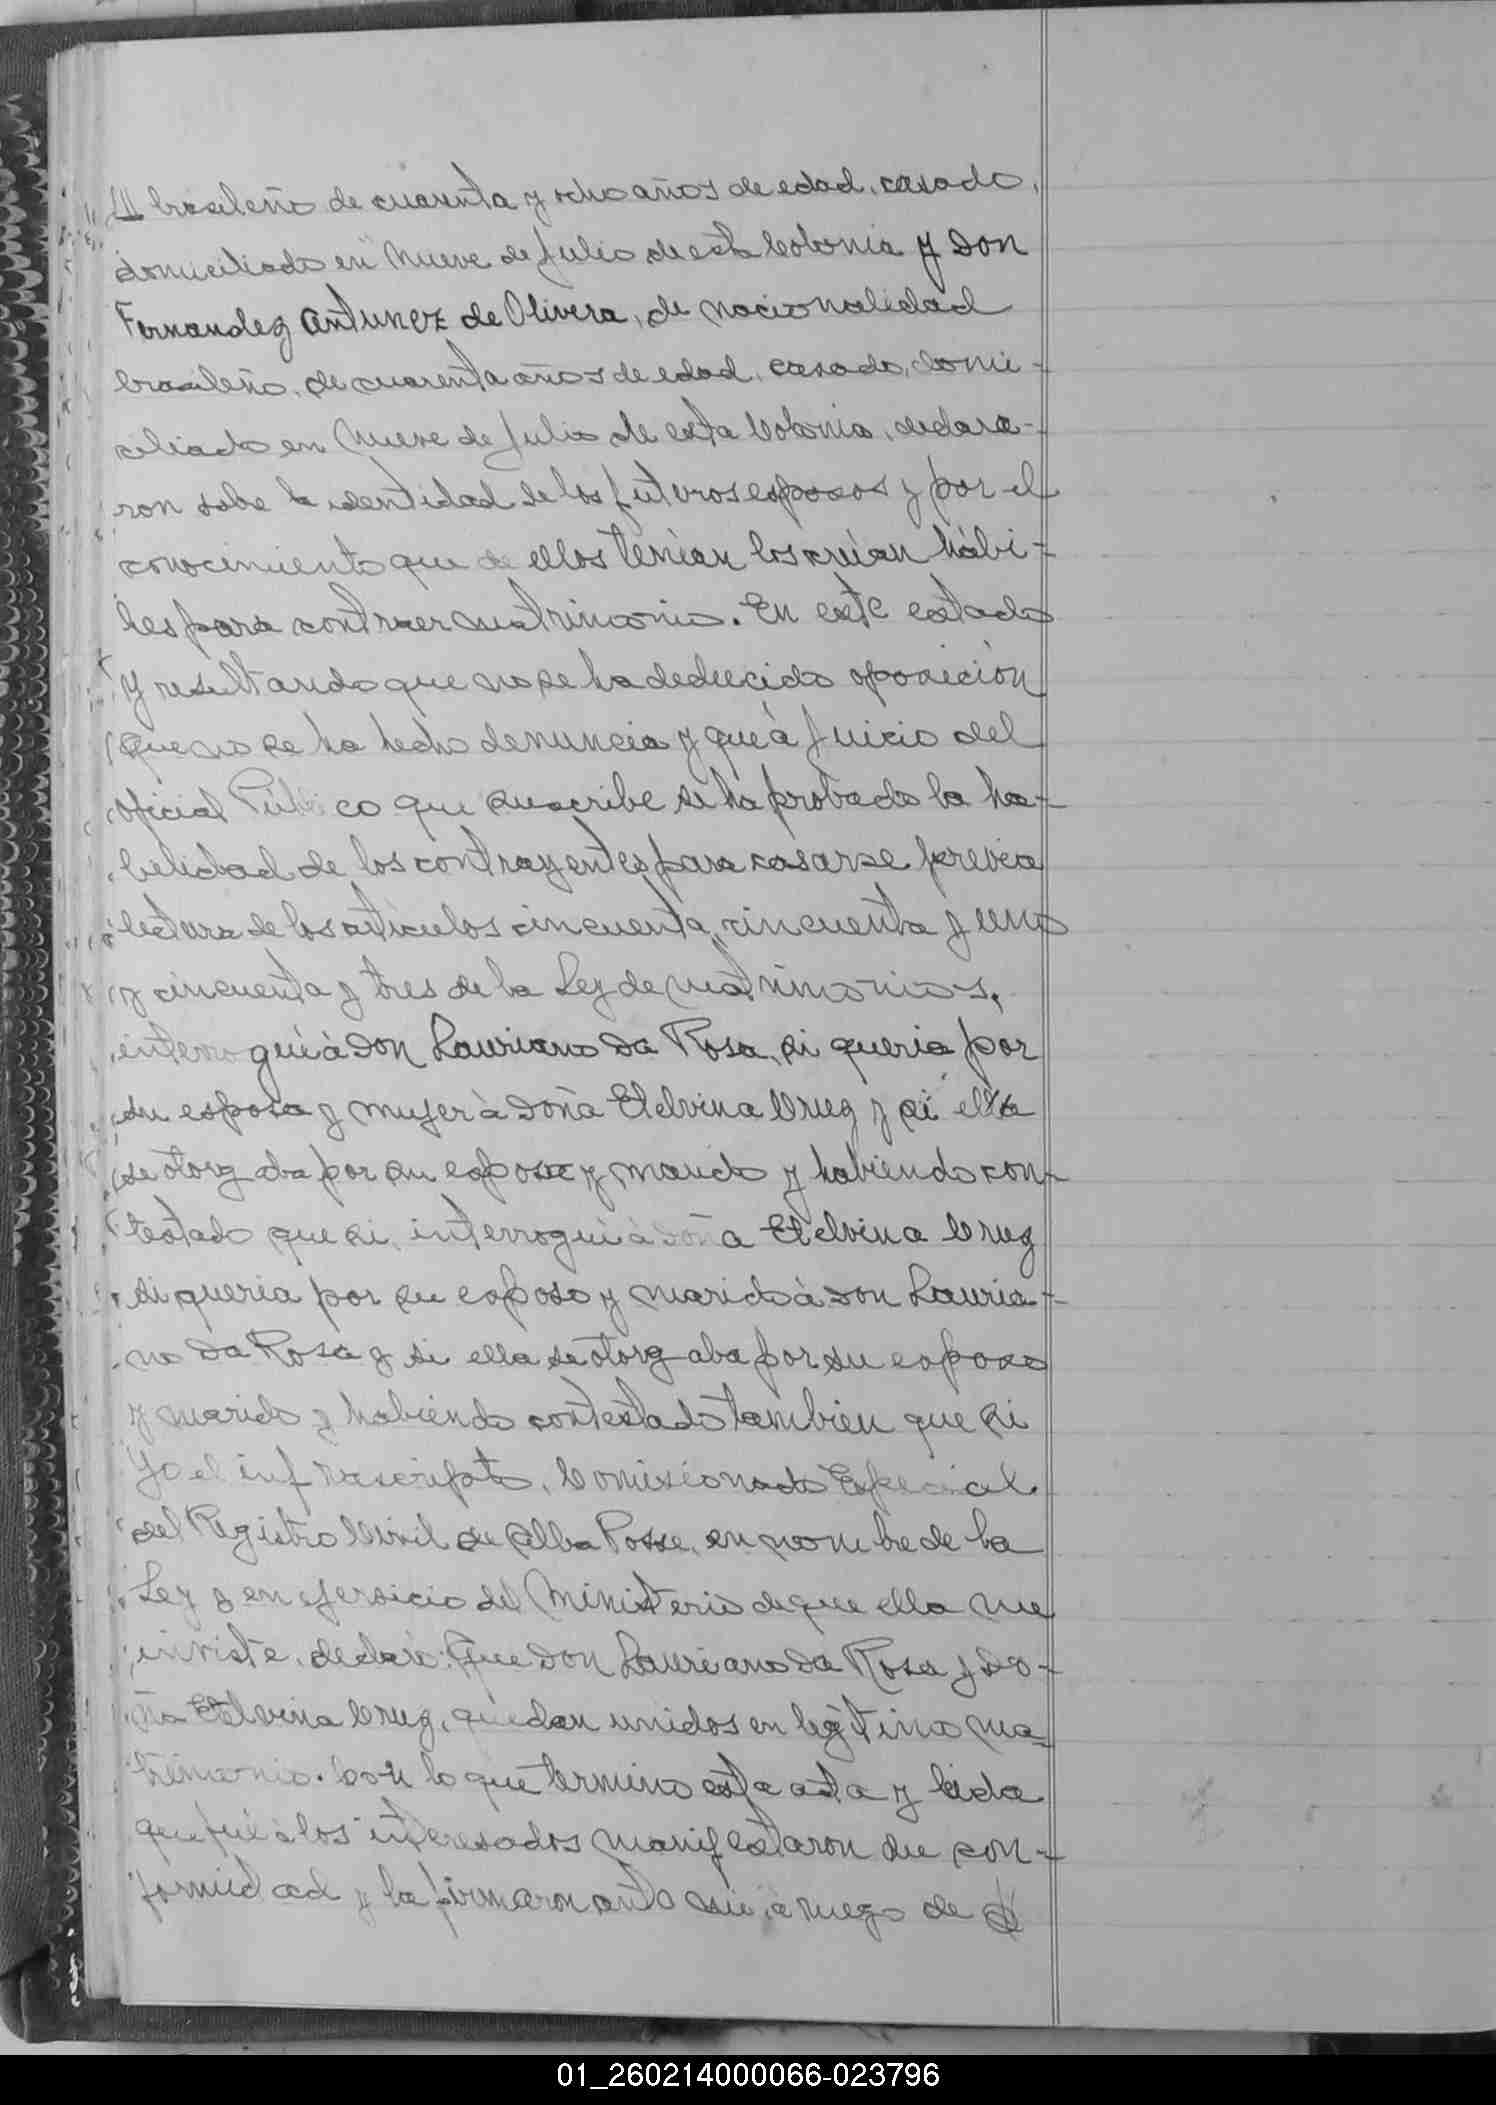 /// brasileño de cuarenta y ocho años de edad, casado,
domiciliado en Nueve de Julio de esta Colonia y Don
Fernandez Antunez de Olivera, de nacionalidad
brasileño, de cuarenta años de edad, casado, domi-
ciliado en Nueve de Julio de esta Colonia, declara-
ron sobe la identidad de los futuros esposos y por el
conocimiento que de ellos tenian los creian hábi-
les para contraer matrimonio. En este estado
y resultando que no se ha deducido oposición
que no se ha hecho denuncia y que á juicio del
oficial Público que suscribe se ha probado la ha-
bilidad de los contrayentes para casarse previa
lectura de los articulos cincuenta, cincuenta y uno
y cincuenta y tres de la Ley de Matrimonios,
interrogué á Don Lauriano da Rosa, si queria por
su esposa y mujer á Doña Etelvina Cruz y si ella
se otorgaba por su esposo y marido y habiendo con-
testado que si, interrogué á Doña Etelvina Cruz
si queria por su esposo y marido á Don Lauria-
no da Rosa y si ella se otorgaba por su esposo
y marido y habiendo contestado tambien que si
Yo el infrascripto, Comisionado Especial
del Registro Civil de Alba Posse, en nombre de la
Ley y en ejersicio del Ministerio de que ella me
inviste, declaro: Que Don Lauriano da Rosa y Do-
ña Etelvina Cruz, quedan unidos en legitimo ma-
trimonio. Con lo que termino esta acta y leida
que fué á los interesados manifestaron su con-
formidad y la firmaron ante mi, á ruego de
01_260214000066-023796